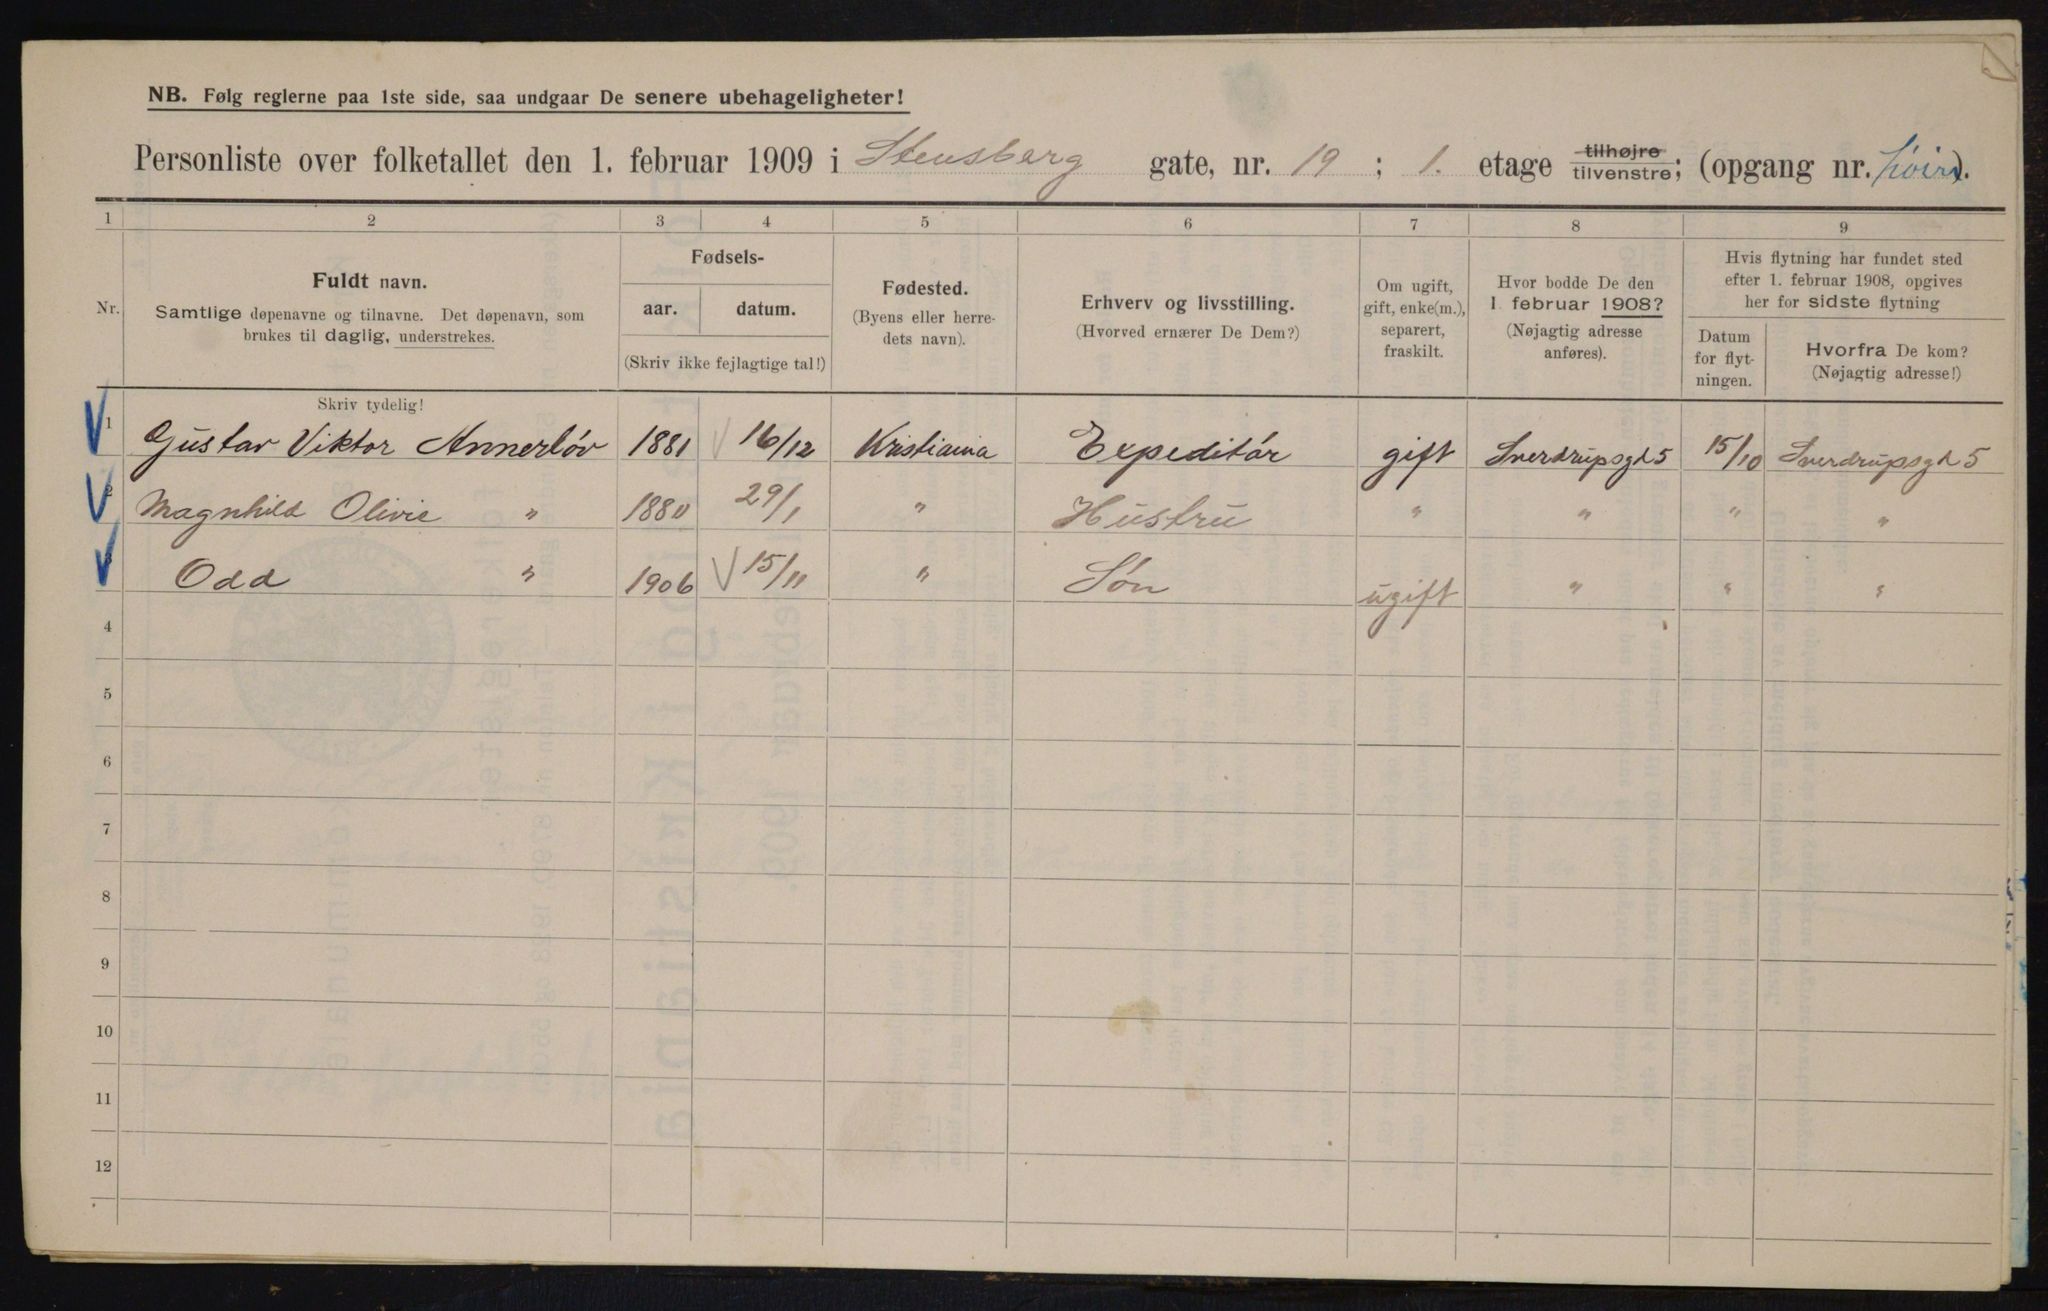 NB. Følg reglerne paa 1ste side, saa undgaar De senere ubehageligheter!
Personliste over folketallet den 1. februar 1909 i Stensberg gate, nr. 19 ; 1. etage tilhøjre tilvenstre; (opgang nr. høire).
1 2 3 4 5 6 7 8 9
Nr.
Fuldt navn.
Samtlige døpenavne og tilnavne. Det døpenavn, som
brukes til daglig, understrekes.
Skriv tydelig!
Fødsels-
aar. datum.
(Skriv ikke fejlagtige tal!)
Fødested.
(Byens eller herre-
dets navn).
Erhverv og livsstilling.
(Hvorved ernærer De Dem?)
Om ugift,
gift, enke(m.),
separert,
fraskilt.
Hvor bodde De den
1. februar 1908?
(Nøjagtig adresse
anføres).
Hvis flytning har fundet sted
efter 1. februar 1908, opgives
her for sidste flytning
Datum
for flyt-
ningen.
Hvorfra De kom?
(Nøjagtig adresse!)
1 Gustav Viktor Annerløv 1881 16/12 Kristiania Expeditør gift Sverdrupsgd 5 15/10 Sverdrupsgd 5
2 Magnhild Olivie " 1880 29/1 " Hustru " " " "
3 Odd " 1906 15/11 " Søn ugift " " "
4
5
6
7
8
9
10
11
12